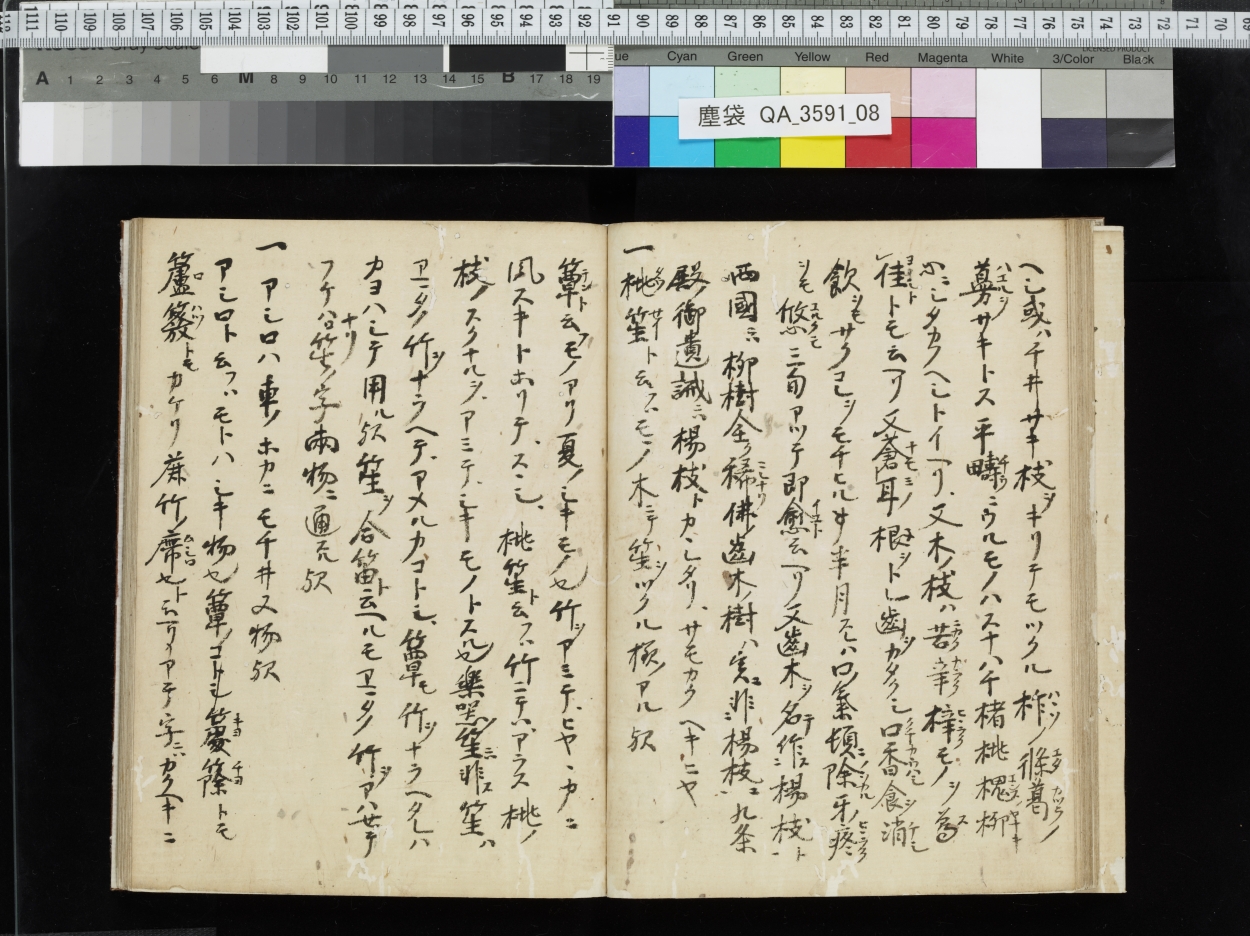 塵袋 QA_3591_08
Cyan Green Yellow Red Magenta White 3/Color Black
LICENSED PRODUCT
A 1 2 3 4 5 6 M 8 9 10 11 12 13 14 15 B 17 18 19
111 110 109 108 107 106 105 104 103 102 101 100 99 98 97 96 95 94 93 92 91 90 89 88 87 86 85 84 83 82 81 80 79 78 77 76 75 74 73 72 71 70 69
ヘシ或ハチ井サキ枝ヲキリテモツクル柞ノ條葛ノ
蔓ワサキトス平疇ニウルモノハスナハチ楮桃槐柳
カニシタカヘシトイヘリ又木ノ枝ハ苦辛梓モノヲ為
佳トモ云ヘリ又蒼耳根ヲトレ歯ヲカタクシ口香食消
飲シモサクヨシヲモチヒルヿ半月スレハ口氣頓除牙疼
シモ悠三旬アツテ即愈云ヘリ又歯木ヲ名作楊枝ト
西國ニ柳樹全ク稀佛歯木ノ樹ハ実ニ非楊枝ニ九条
殿ノ御遺誡ニ楊枝トカヽレタリサモカクヘキニヤ
一桃笙ト云フハモヽノ木ニテ笙ヲツクル様アル欤
簟云フモノアリ夏ノシキモノ也竹ヲアミテヒヤヽカニ
風スキトホリテスヽシ桃笙ト云フハ竹ニテハアラス桃ノ
枝ノスクナルヲアミテシキモノトスル也樂器ノ笙ニ非ス笙ハ
ワニタノ竹ヲナラヘテアメルカコトシ簟モ竹ヲナラヘタレハ
カヨハシテ用ル欤笙ヲ合笛ト云ヘルモワニタノ竹ヲアハセテ
フケハ笙ノ字両物ニ通スル欤
一アシロハ車ノホカニモチ井ヌ物欤
アシロト云フハモトハシキ物也簟ノコトシ籧篨トモ
簏簸トモカケリ麁竹ノ席也ト云ヘリアテ字ニハカクヘキニ